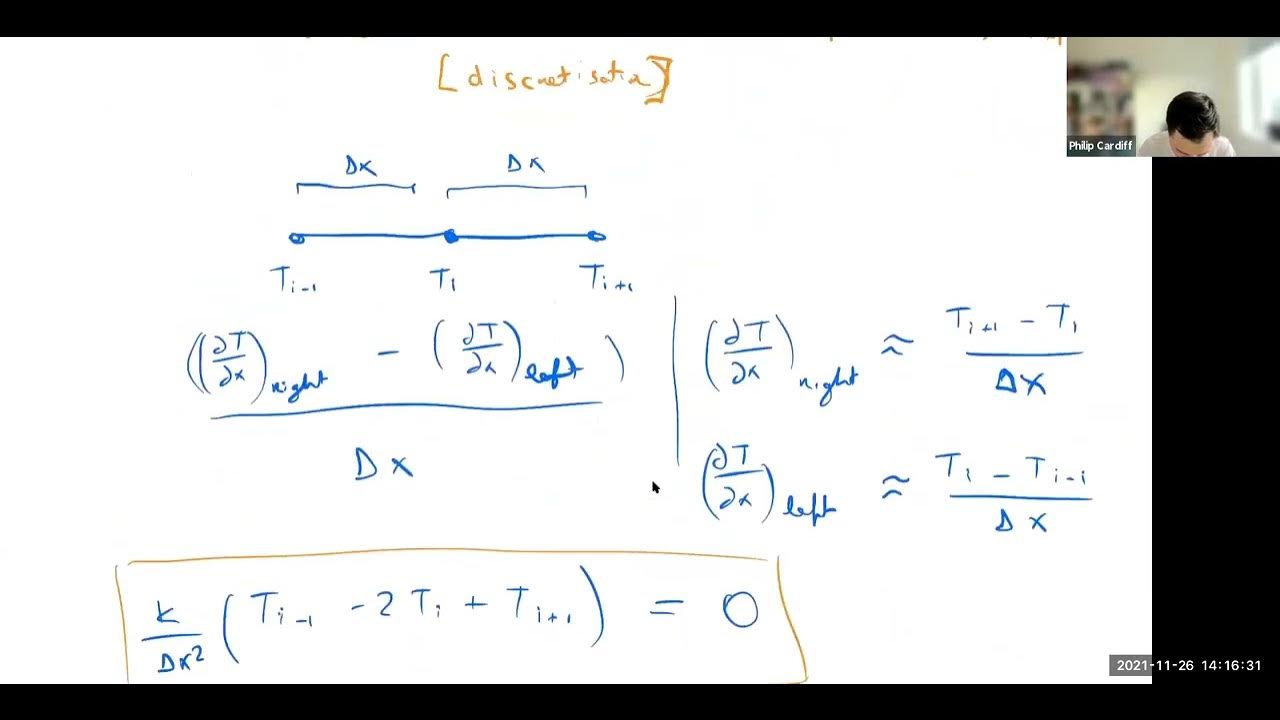 [discretisation]
Δx Δx
T_{i-1} T_i T_{i+1}
((∂T/∂x)_right - (∂T/∂x)_left) / Δx
(∂T/∂x)_right ≈ (T_{i+1} - T_i) / Δx
(∂T/∂x)_left ≈ (T_i - T_{i-1}) / Δx
k/Δx² (T_{i-1} - 2T_i + T_{i+1}) = 0
Philip Cardiff
2021-11-26 14:16:31